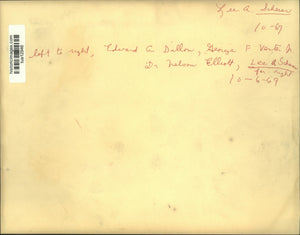 Lee A Scherer
10-69
left to right, Edward A. Dillon, George F Vavter Jr
Dr Nelson Elliott, Lee A Scherer
far right
10-6-69
historicimages.com